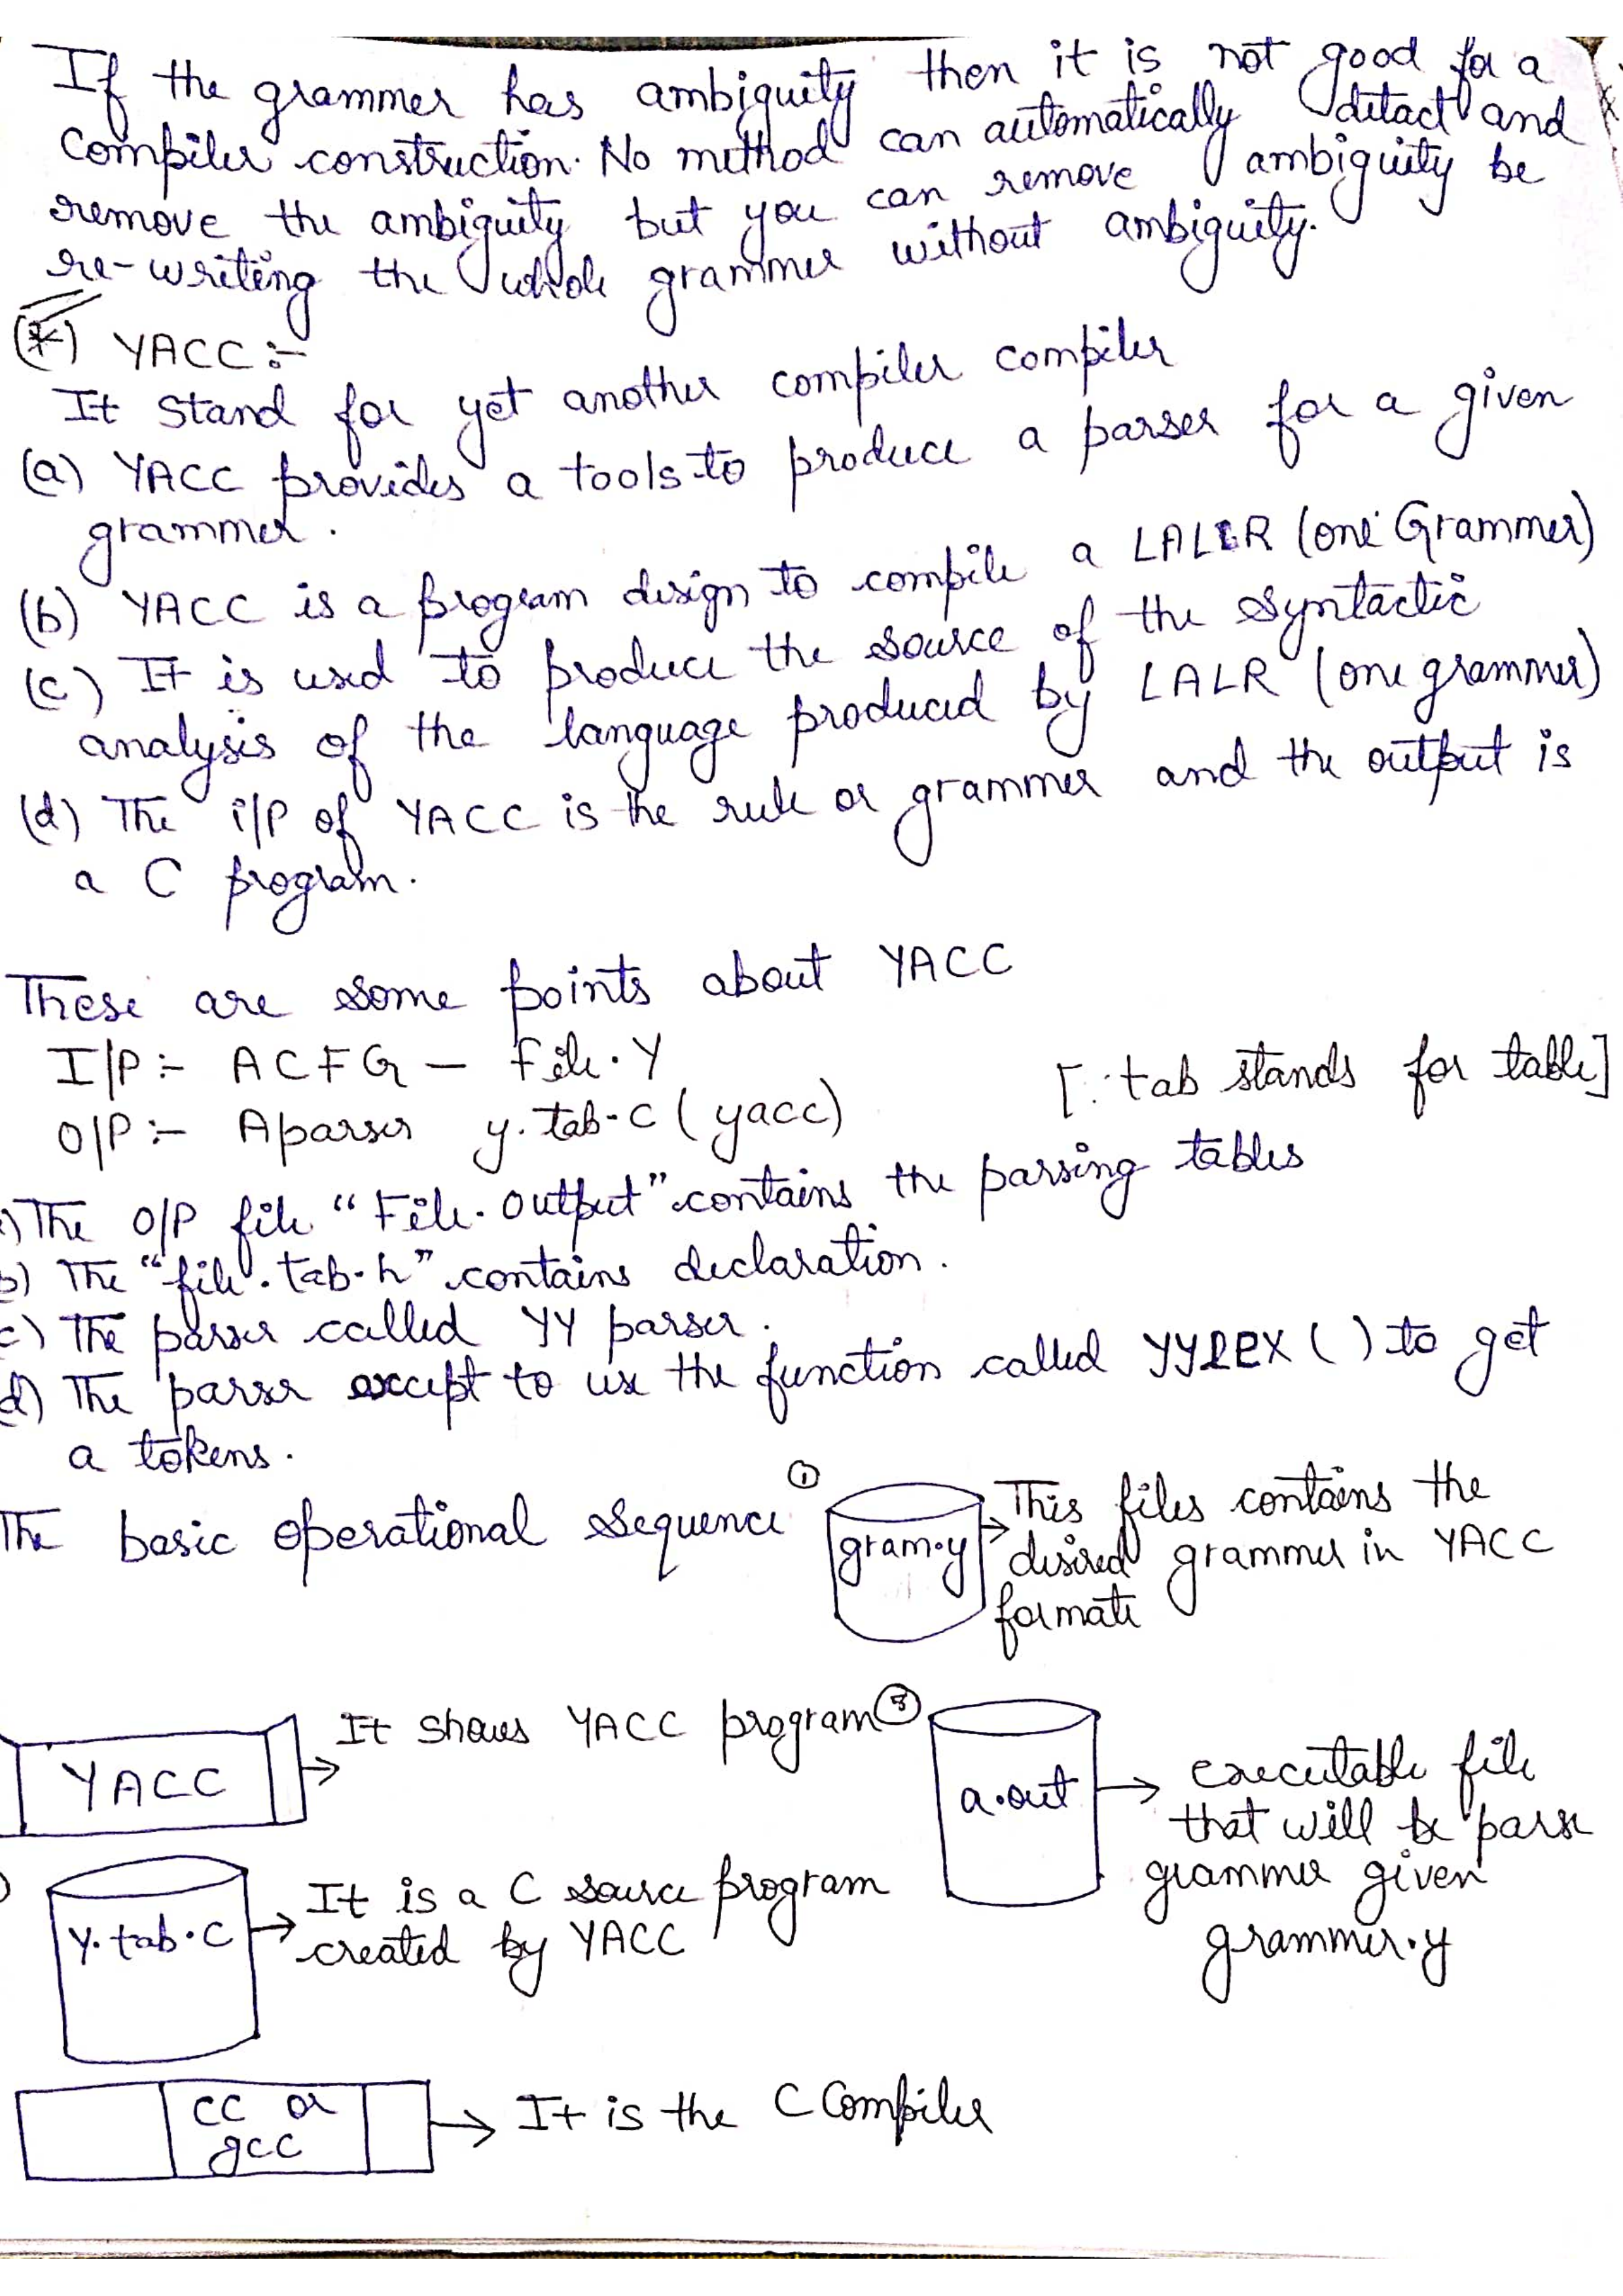 If the grammer has ambiguity then it is not good for a
compiler construction. No method can automatically detact and
remove the ambiguity but you can remove ambiguity be
re-writing the whole grammer without ambiguity.
(*) YACC :-
It stand for yet another compiler compiler
(a) YACC provides a tools to produce a parser for a given
grammer.
(b) YACC is a program design to compile a LALR (one Grammer)
(c) It is used to produce the source of the syntactic
analysis of the language produced by LALR (one grammer)
(d) The i/P of YACC is the rule or grammer and the output is
a C program.
These are some points about YACC
I/P :- A CFG - File.Y
O/P :- A parser y.tab.c (yacc) [∵ tab stands for table]
) The O/P file "File.output" contains the parsing tables
b) The "file.tab.h" contains declaration.
c) The parser called YY parser.
d) The parser except to use the function called YYLEX ( ) to get
a tokens.
The basic operational sequence
① gram.y → This files contains the
desired grammer in YACC
formate
YACC → It shows YACC program
③ a.out → executable file
that will be parse
grammer given
grammer.y
y.tab.c → It is a C source program
created by YACC
cc or
gcc → It is the C Compiler